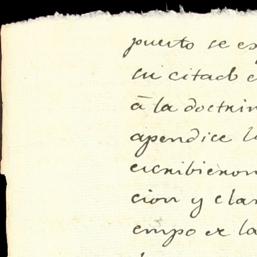 puerto se es
su citado c
á la doctrin
apendice l
escribieron
cion y clar
empo es la